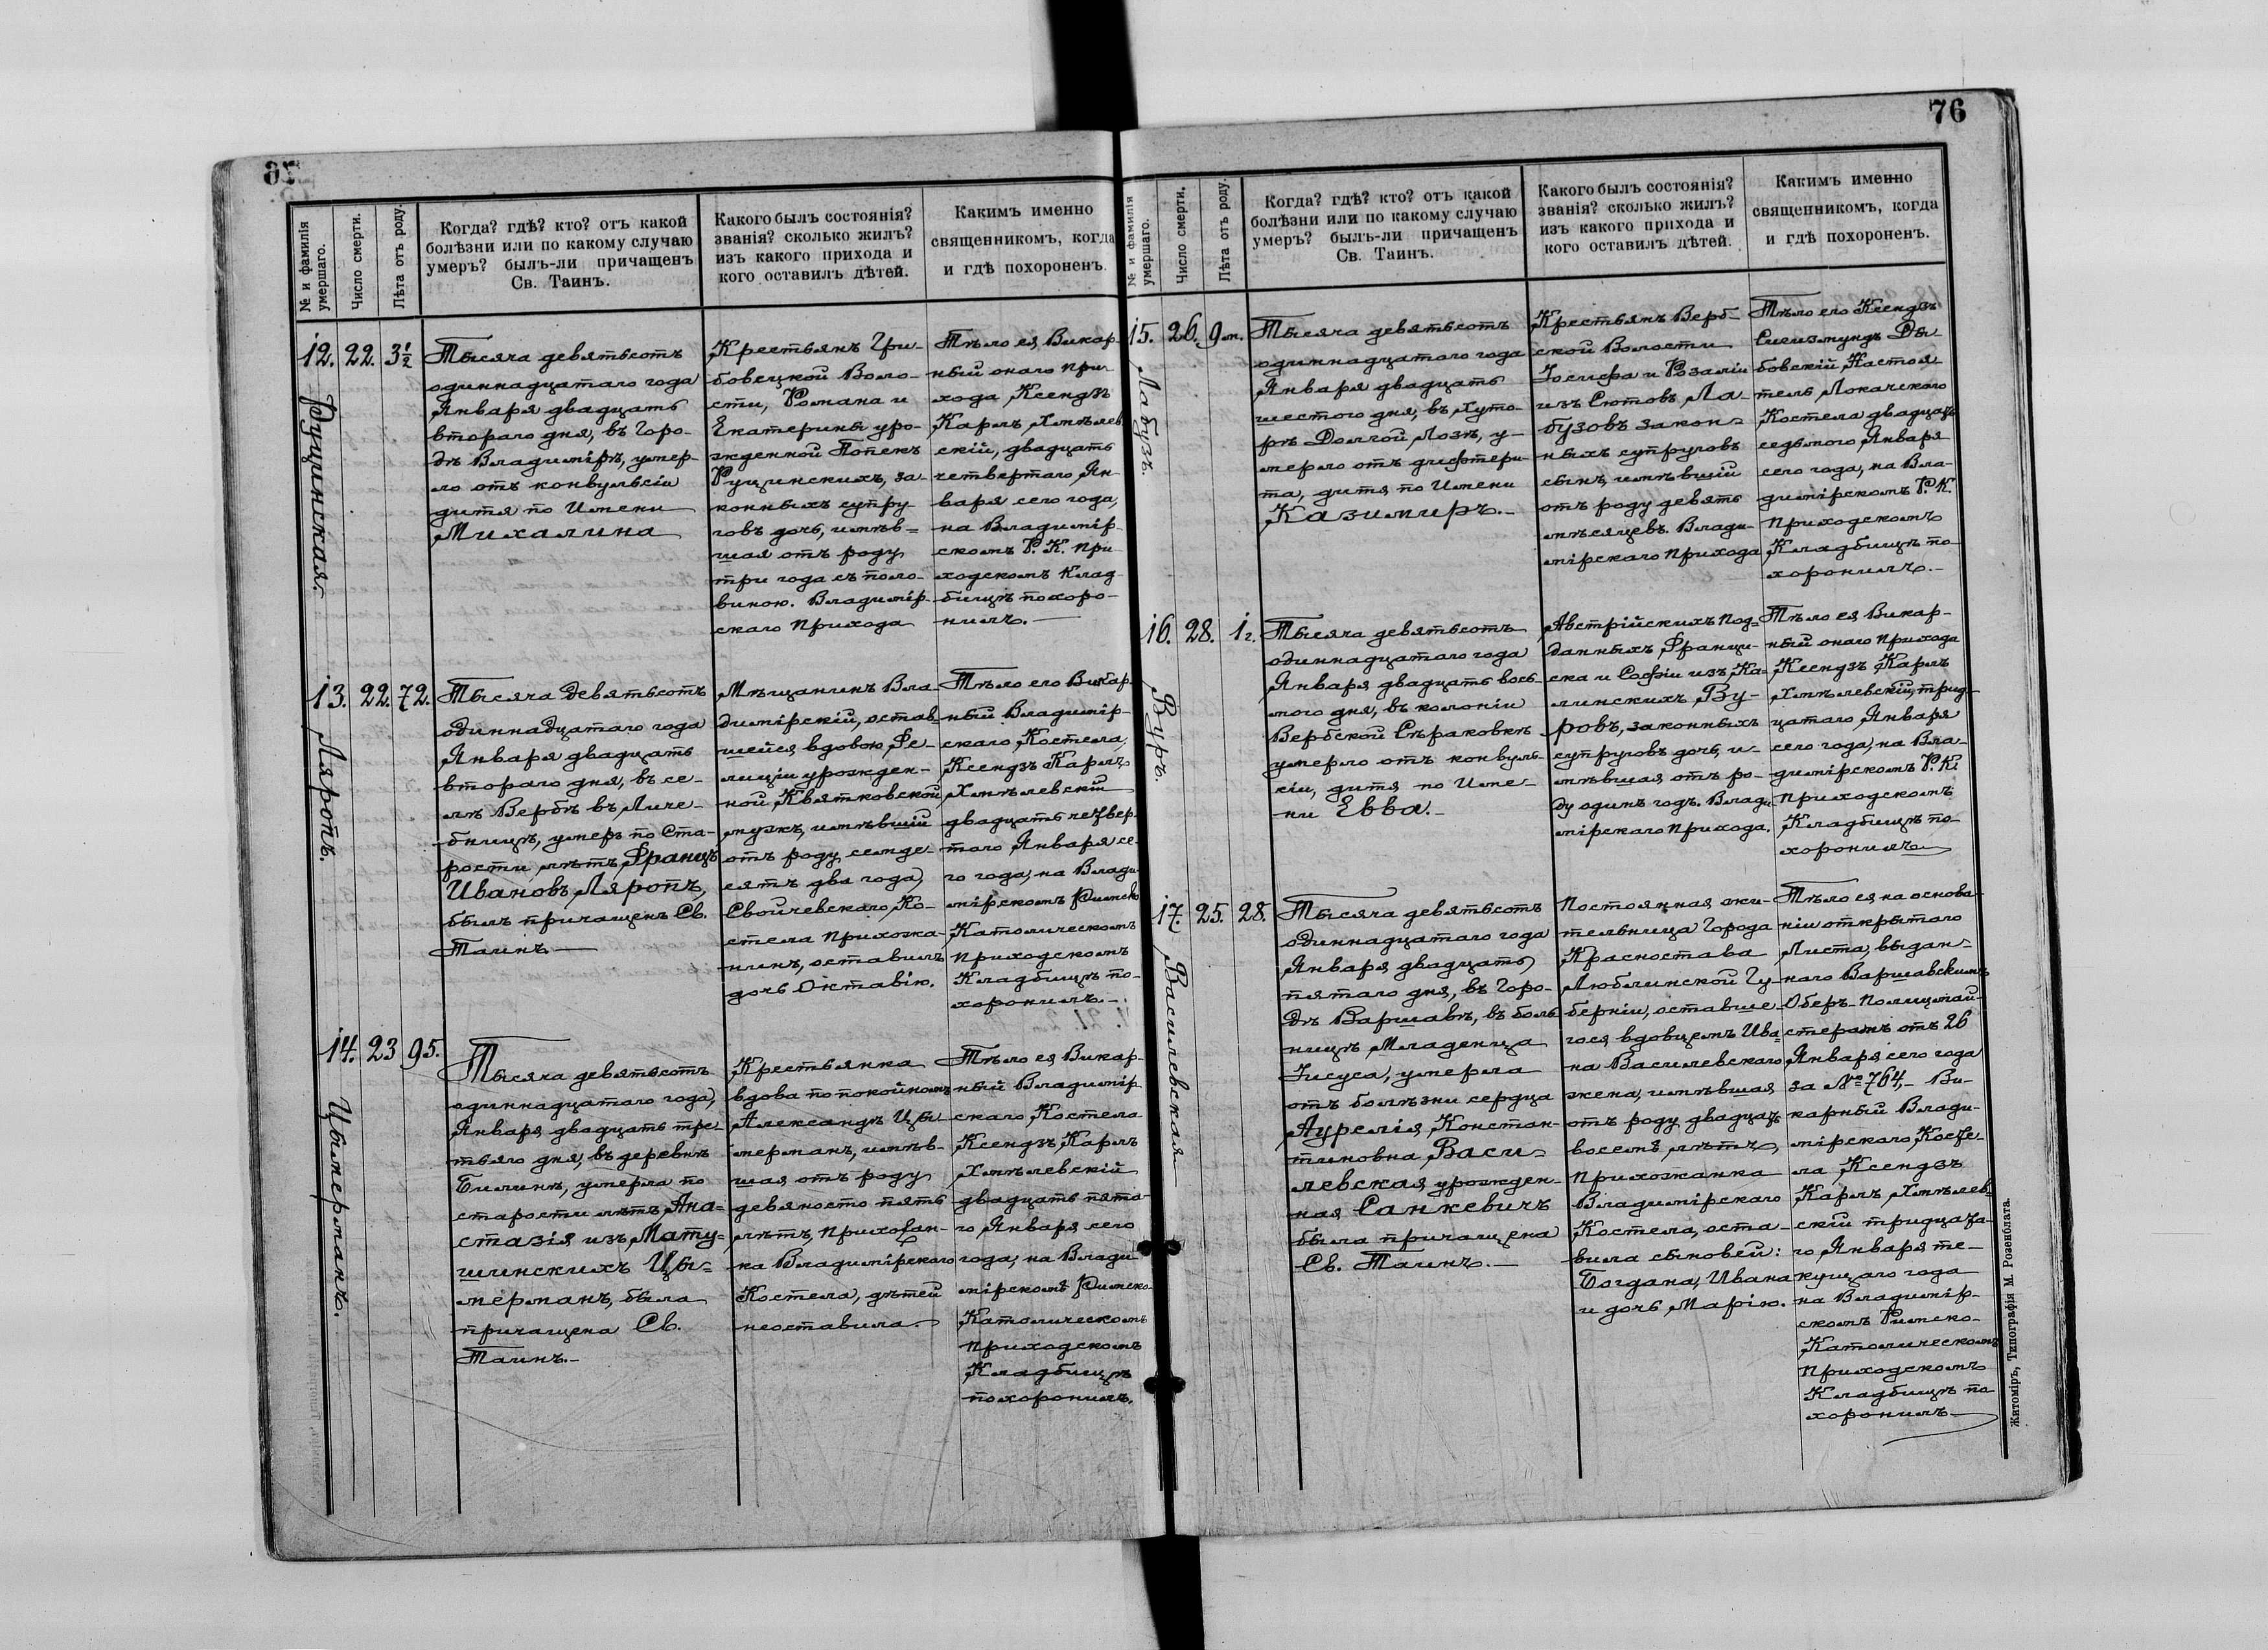 76
№ и фамилія умершаго.
Число смерти.
Лѣта отъ роду.
Когда? гдѣ? кто? отъ какой
болѣзни или по какому случаю
умеръ? былъ-ли причащенъ
Св. Таинъ.
Какого былъ состоянія?
званія? сколько жилъ?
изъ какого прихода и
кого оставилъ дѣтей.
Какимъ именно
священникомъ, когда
и гдѣ похороненъ.
12. 22. 3½
Рущинская.
Тысяча девятьсотъ
одиннадцатаго года
Января двадцать
втораго дня, въ Горо-
дѣ Владимірѣ, умер-
ло отъ конвульсіи
дитя по Имени
Михалина
Крестьянъ Гри-
бовецкой Воло-
сти, Романа и
Екатерины уро-
жденной Попекъ
Рущинскихъ, за-
конныхъ супру-
говъ дочь, имѣв-
шая отъ роду
три года съ поло-
виною. Владимір-
скаго Прихода
Тѣло ея Викар-
ный онаго при-
хода Ксендзъ
Карлъ Хмѣлев-
скій, двадцать
четвертаго Ян-
варя сего года,
на Владимір-
скомъ Р. К. при-
ходскомъ Клад-
бищѣ похоро-
нилъ.
13. 22. 72.
Ляропъ.
Тысяча девятьсотъ
одиннадцатаго года
Января двадцать
втораго дня, въ се-
лѣ Вербѣ въ Лече-
бницѣ, умеръ по Ста-
рости лѣтъ, Францъ
Ивановъ Ляропъ,
былъ причащенъ Св.
Таинъ.
Мѣщанинъ Вла-
димірскій, остав-
шейся вдовою Фе-
лиціи урожден-
ной Квятковской
мужъ, имѣвшій
отъ роду семде-
сятъ два года,
Свойчевскаго Ко-
стела Прихожа-
нинъ, оставилъ
дочь Октавію.
Тѣло его Викар-
ный Владимір-
скаго Костела,
Ксендзъ Карлъ
Хмѣлевскій
двадцать четвер-
таго Января се-
го года, на Влади-
мірскомъ Римско
Католическомъ
приходскомъ
Кладбищѣ по-
хоронилъ.
14. 23 95.
Цымерманъ.
Тысяча девятьсотъ
одиннадцатаго года,
Января двадцать тре-
тьяго дня, въ деревнѣ
Билинѣ, умерла по
старости лѣтъ, Ана-
стазія изъ Мату-
шинскихъ Цы-
мерманъ, была
причащена Св.
Таинъ.
Крестьянка
вдова по покойномъ
Александѣ Цы-
мерманъ, имѣв-
шая отъ роду
девяносто пять
лѣтъ, Прихожан-
ка Владимірскаго
Костела, дѣтей
неоставила.
Тѣло ея Викар-
ный Владимір
скаго Костела
Ксендзъ Карлъ
Хмѣлевскій
двадцать пята-
го Января сего
года, на Влади
мірскомъ Римско-
Католическомъ
Приходскомъ
Кладбищѣ
похоронилъ.
76
№ и фамилія умершаго.
Число смерти.
Лѣта отъ роду.
Когда? гдѣ? кто? отъ какой
болѣзни или по какому случаю
умеръ? былъ-ли причащенъ
Св. Таинъ.
Какого былъ состоянія?
званія? сколько жилъ?
изъ какого прихода и
кого оставилъ дѣтей.
Какимъ именно
священникомъ, когда
и гдѣ похороненъ.
15. 26. 9м.
Лабузъ.
Тысяча девятьсотъ
одиннадцатаго года
Января двадцать
шестого дня, въ Хуто-
рѣ Долгой Лозѣ, у-
мерло отъ дифтери-
та, дитя по Имени
Казимиръ.
Крестьянъ Верб-
ской Волости
Іосифа и Розаліи
изъ Сютовъ Ла-
бузовъ закон-
ныхъ супруговъ
сынъ, имѣвшій
отъ роду девять
мѣсяцевъ. Влади-
мірскаго Прихода
Тѣло его Ксендзъ
Сигизмундъ Ды
бовскій Настоя
тель Локачскаго
Костела двадцать
седьмого Января
сего года, на Вла-
димірскомъ Р. К.
Приходскомъ
Кладбищѣ по-
хоронилъ.
16. 28. 1г.
Вуръ.
Тысяча девятьсотъ
одиннадцатаго года
Января двадцать вось-
мого дня, въ колоніи
Вербской Сѣраковкѣ
умерло отъ конвуль-
кіи, дитя по Име-
ни Евва.
Австрійскихъ Под-
данныхъ Франци-
ска и Софіи изъ Ка-
линскихъ Ву-
ровъ, законныхъ
супруговъ дочь, и-
мѣвшая отъ ро-
ду одинъ годъ. Влади
мірскаго Прихода.
Тѣло ея Викар-
ный онаго Прихода
Ксендзъ Карлъ
Хмѣлевскій, трид-
цатаго Января
сего года, на Вла-
димірскомъ Р. К.
Приходскомъ
Кладбищѣ по
хоронилъ
17. 25. 28.
Василевская
Тысяча девятьсотъ
одиннадцатаго года
Января двадцать
пятаго дня, въ Горо-
дѣ Варшавѣ, въ боль
ницѣ Младенца
Іисуса, умерла
отъ болѣзни сердца
Аурелія Констан-
тиновна Васи-
левская урожден-
ная Санкевичъ
была причащена
Св. Таинъ.
Постоянная жи-
тельница Города
Красностава
Люблинской Гу-
берніи, оставше-
гося вдовцемъ Ива-
на Василевскаго
жена, имѣвшая
отъ роду двадцать
восемь лѣтъ,
Прихожанка
Владимірскаго
Костела, оста-
вила сыновей:
Богдана, Ивана
и дочь Марію.
Тѣло ея на основа-
ніи открытаго
Листа, выдан-
наго Варшавскимъ
Оберъ-Полицмай-
стеромъ отъ 26
Января сего года
за №764, Ви-
карный Влади-
мірскаго Косте-
ла Ксендзъ
Карлъ Хмѣлев-
скій тридцата-
го Января те-
кущаго года
на Владимір-
скомъ Римско-
Католическомъ
Приходскомъ
Кладбищѣ по
хоронилъ
Житоміръ, Типографія М. Розенблата.